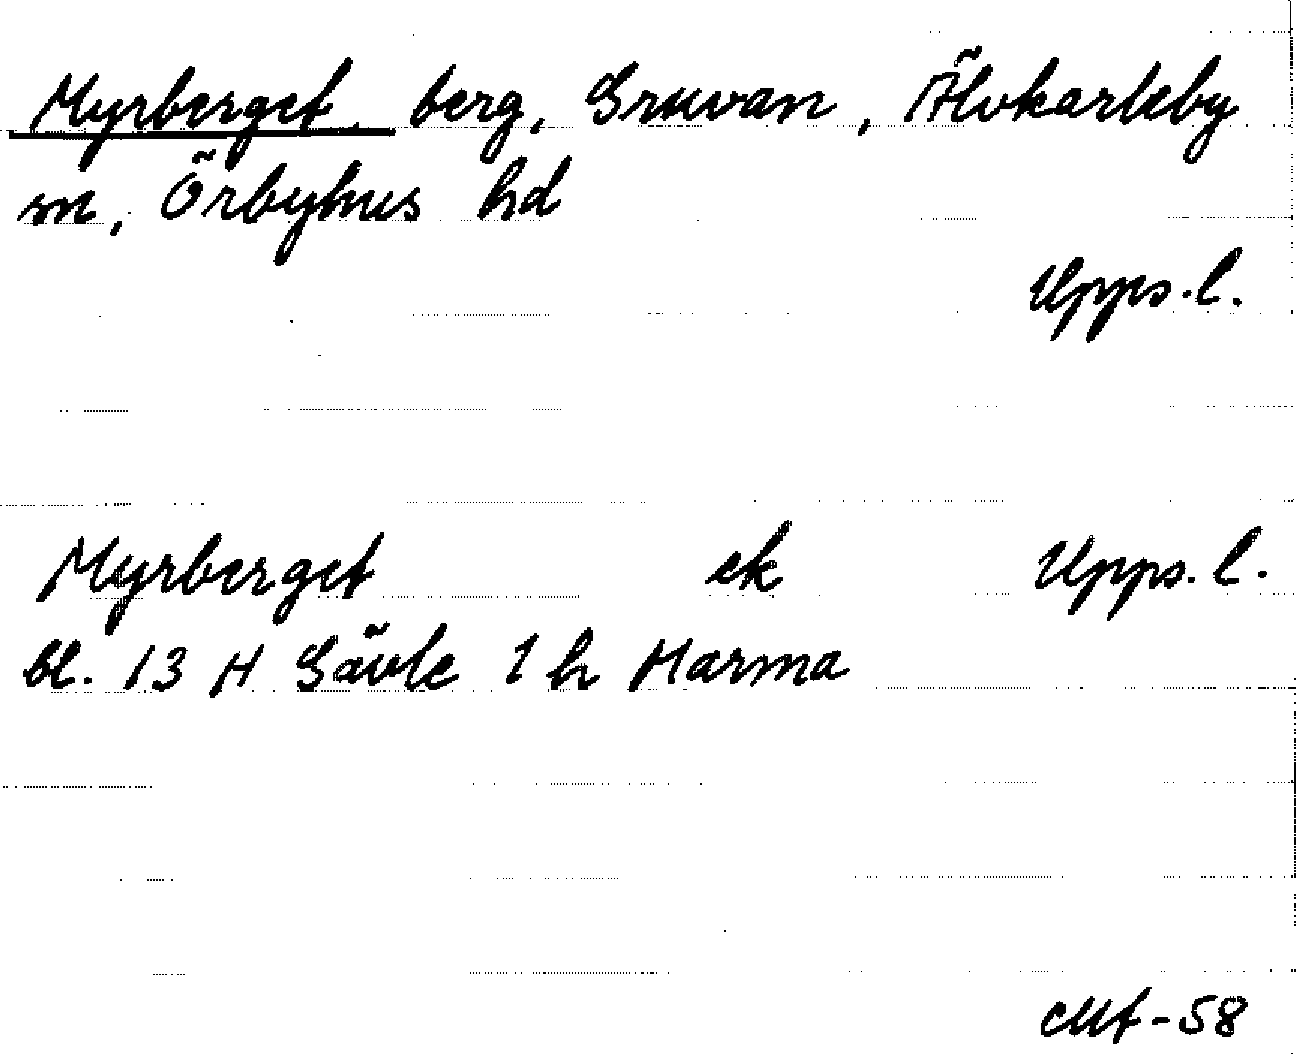 Myrberget, berg, Gruvan, Älvkarleby
sn, Örbyhus hd
Upps.l.
Myrberget ek Upps.l.
bl. 13 H Gävle 1 h Marma
-58